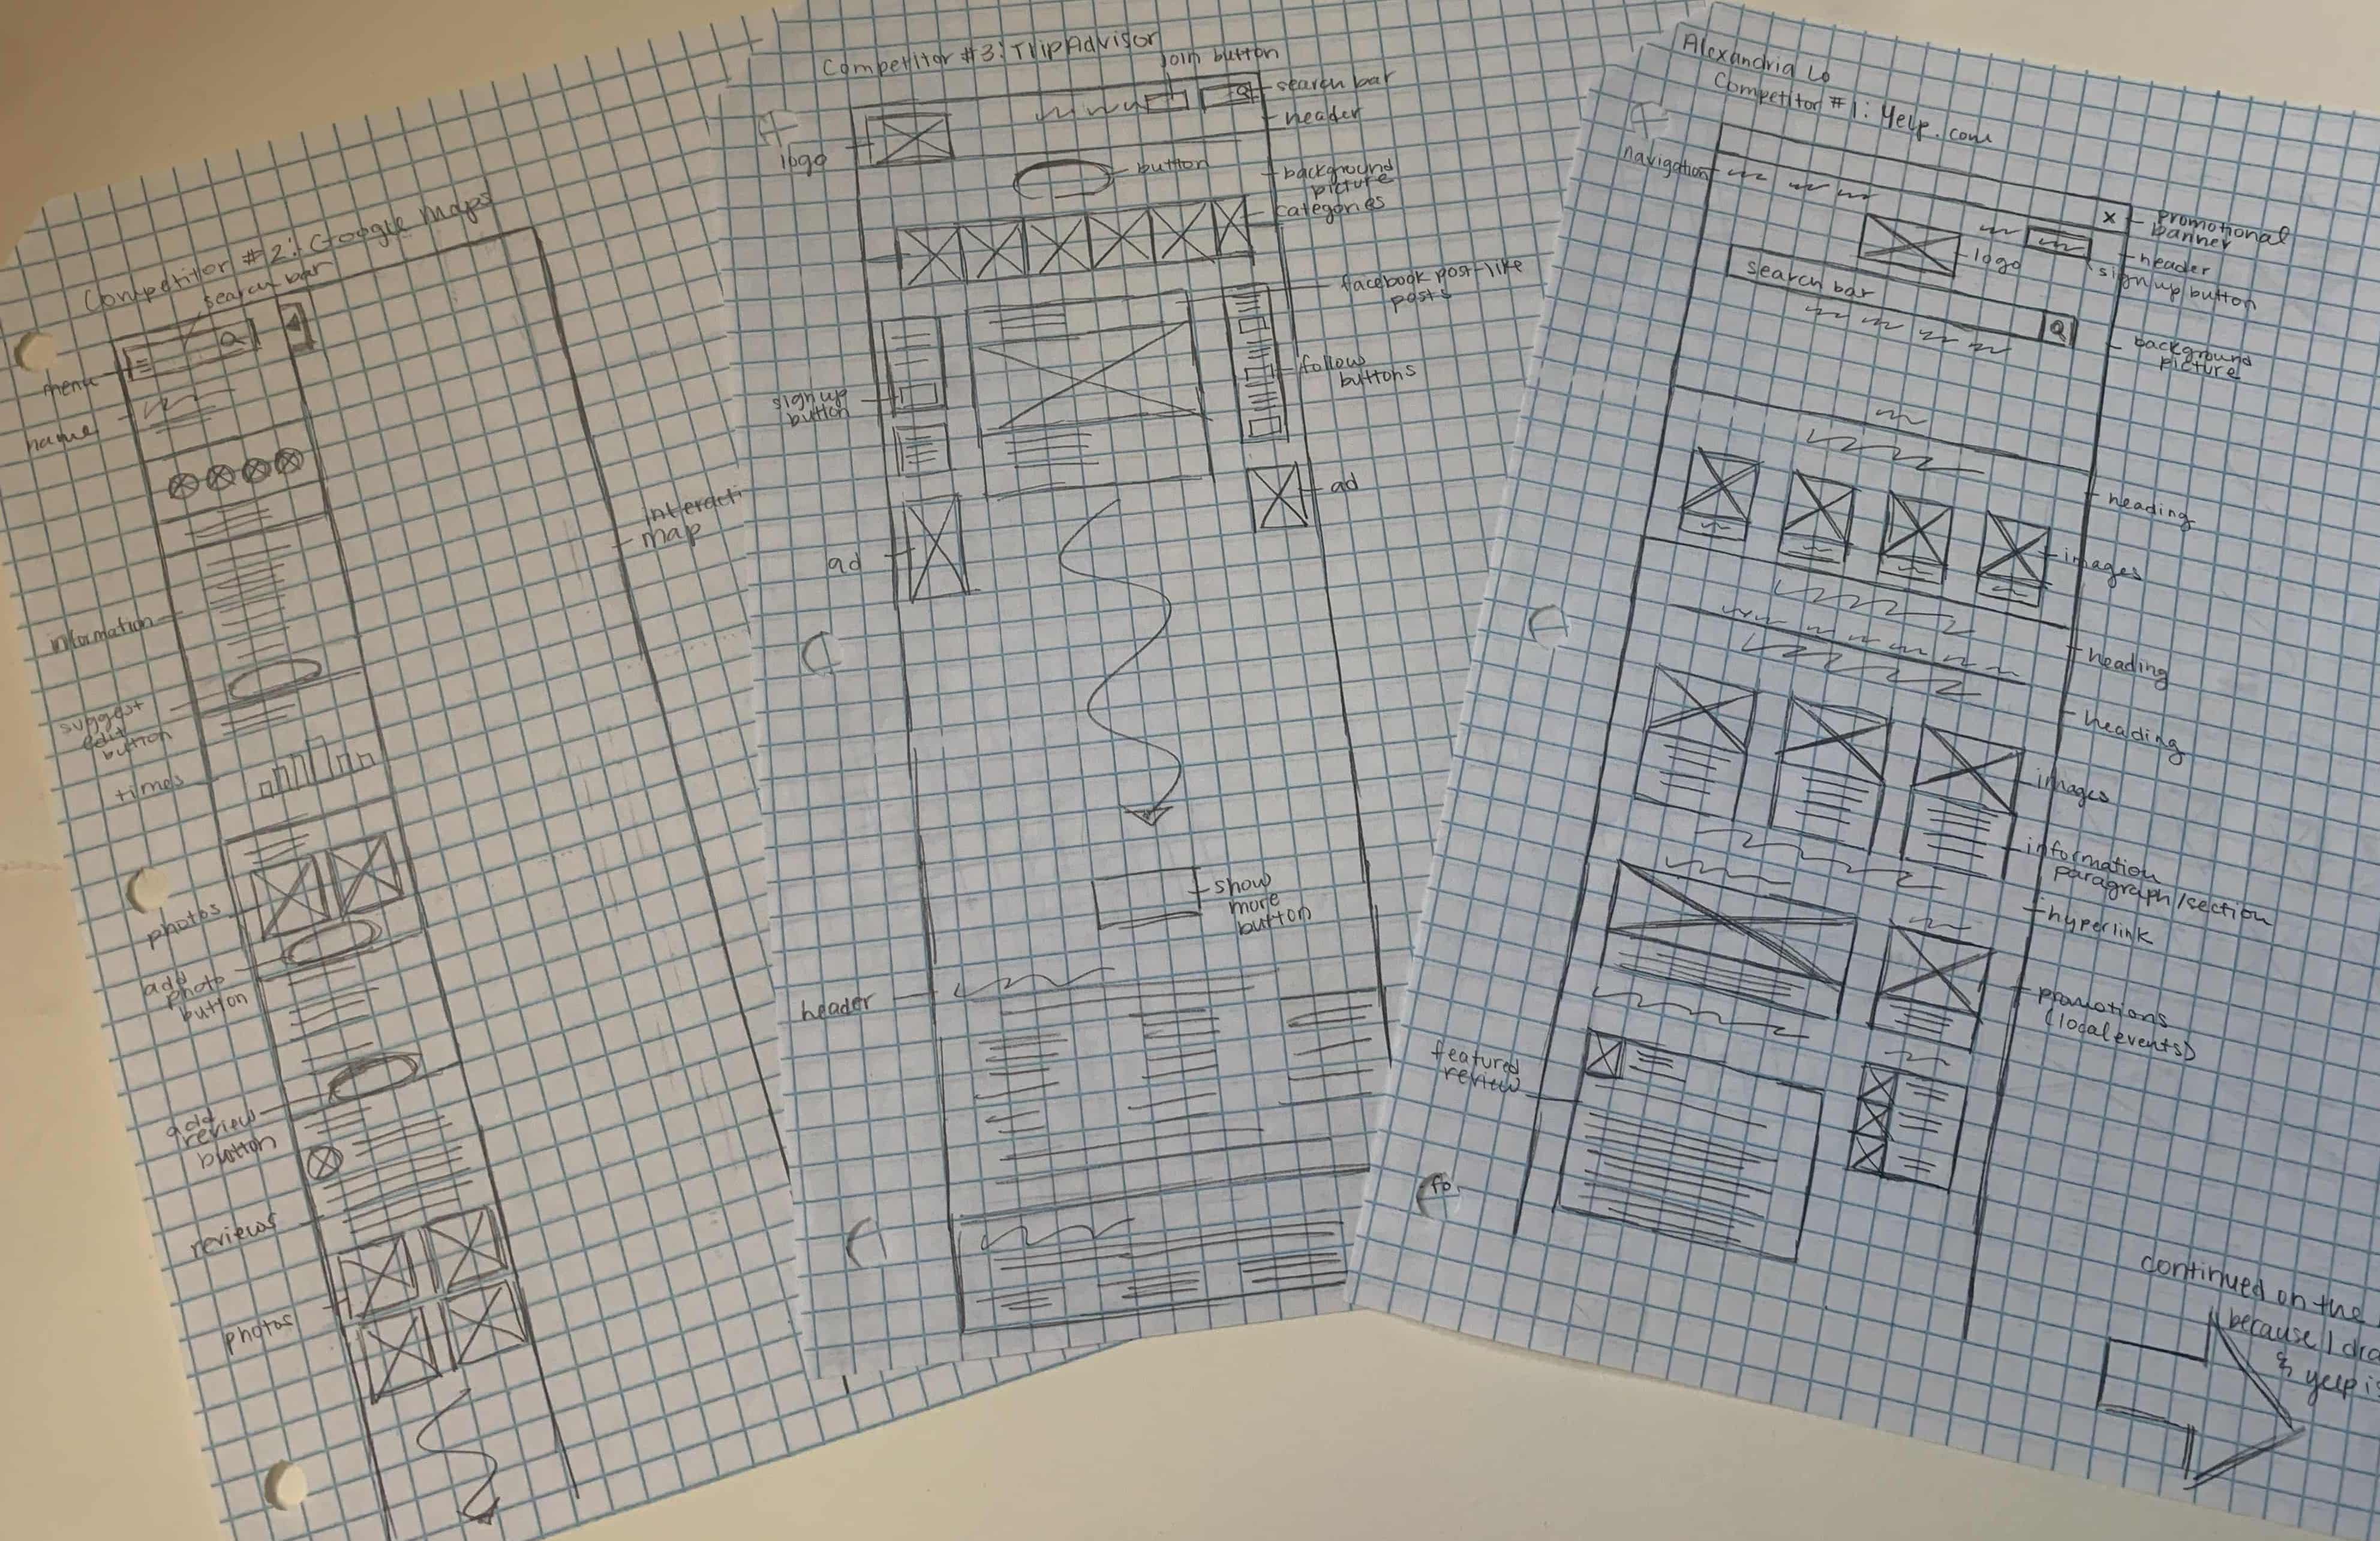 Competitor #2: Google Maps
search bar
menu
name
interacti
map
information
suggest
edit
button
times
photos
add
photo
button
add
review
button
reviews
photos
Competitor #3: TripAdvisor
join button
search bar
header
logo
button
background
picture
categories
facebook post-like
posts
sign up
button
follow
buttons
ad
ad
show
more
button
header
Alexandria Lo
Competitor #1: Yelp.com
navigation
x
promotional
banner
logo
header
sign up button
search bar
background
picture
heading
images
heading
heading
images
information
paragraph/section
hyperlink
promotions
(local events)
featured
review
fo
continued on the
because I dra
& yelp is